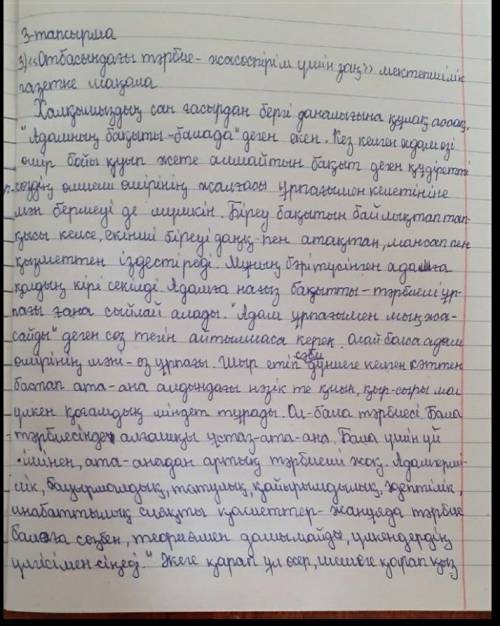 3-тапсырма
3) «Отбасындағы тәрбие - жасөспірім үшін заң» мектепішілік
газетке мақала
Халқымыздың сан ғасырдан бергі даналығына құлақ ассақ,
"Адамның бақыты-балада" деген екен. Кез келген адам өзі
өмір бойы қуып жете алмайтын бақыт деген құдіретті
сөздің өлшемі өмірінің жалғасы ұрпағымен келетініне
мән бермеуі де мүмкін. Біреу бақытын байлықтан тап-
қысы келсе, екінші біреуі даңқ пен атақтан, мансап пен
қызметтен іздестіреді. Мұның бәрі түсінген адамға
қолдың кірі секілді. Адамға нағыз бақытты - тәрбиелі ұр-
пағы ғана сыйлай алады. "Адам ұрпағымен мың жа-
сайды" деген сөз тегін айтылмаса керек. Олай болса адам
өмірінің мәні - өз ұрпағы. Шыр етіп сәби дүниеге келген сәттен
бастап ата-ана алдындағы нәзік те қиын, қыр-сыры мол
үлкен қоғамдық міндет тұрады. Ол - бала тәрбиесі. Бала
тәрбиесіндегі алғашқы ұстаз-ата-ана. Бала үшін үй
ішінен, ата-анадан артық тәрбиеші жоқ. Адамгерші-
лік, бауырмалдық, татулық, қайырымдылық, әдептілік,
инабаттылық сияқты қасиеттер - жанұяда тәрбие
балаға сөзбен, теориямен дамымайды, үлкендердің
үлгісімен сіңеді. "Әкеге қарап ұл өсер, шешеге қарап қыз